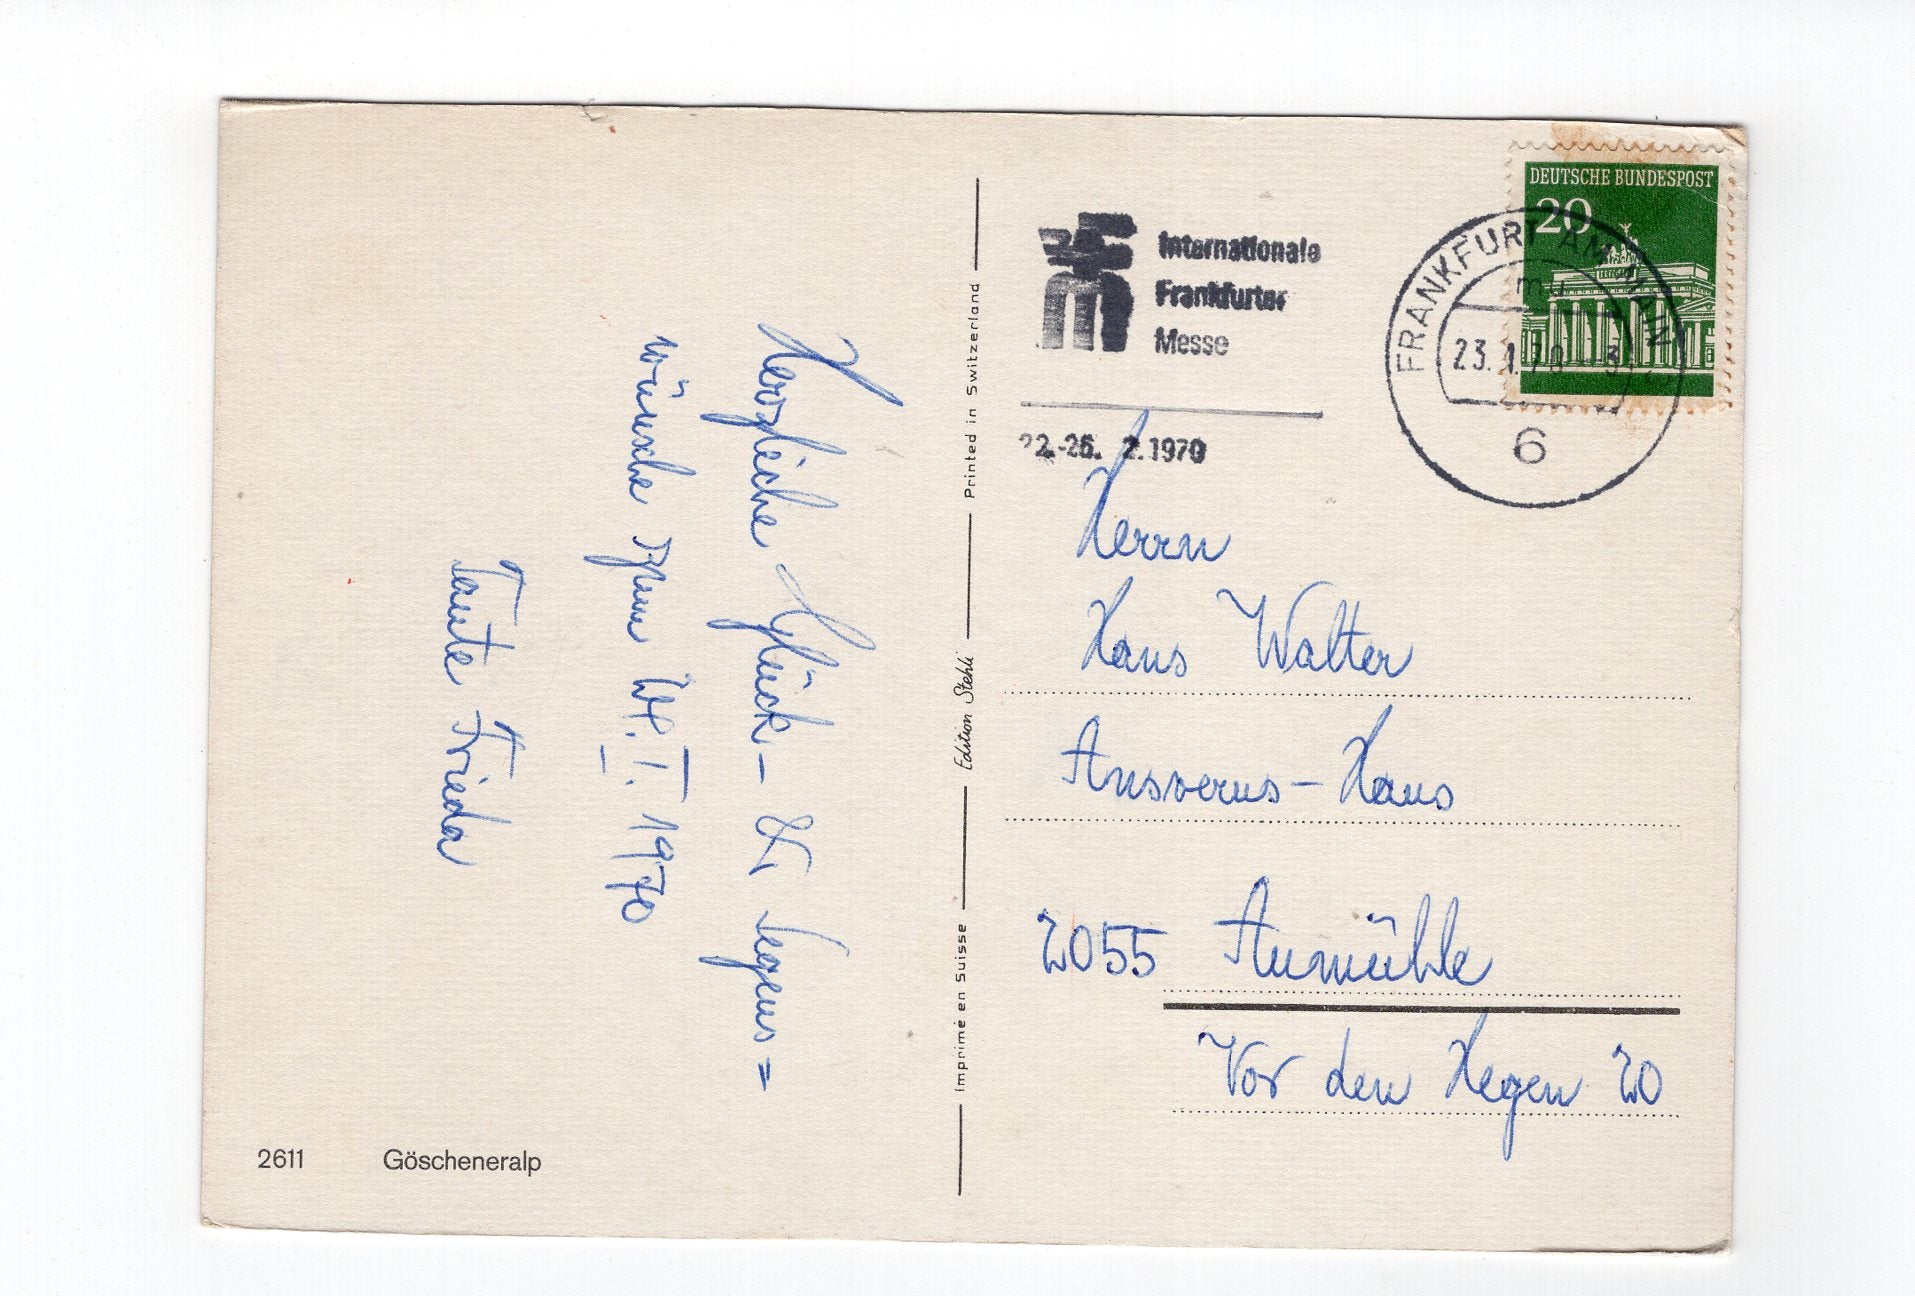 Herzliche Glück- & Segens=
wünsche zum 24. I. 1970
Tante Frieda
2611 Göscheneralp
Printed in Switzerland
Edition Stehli
Imprimé en Suisse
Internationale
Frankfurter
Messe
22.-26. 2. 1970
DEUTSCHE BUNDESPOST
20
FRANKFURT AM MAIN
mu
23. 1. 70
6
Herrn
Hans Walter
Ansverus-Haus
2055 Aumühle
Vor den Hegen 20